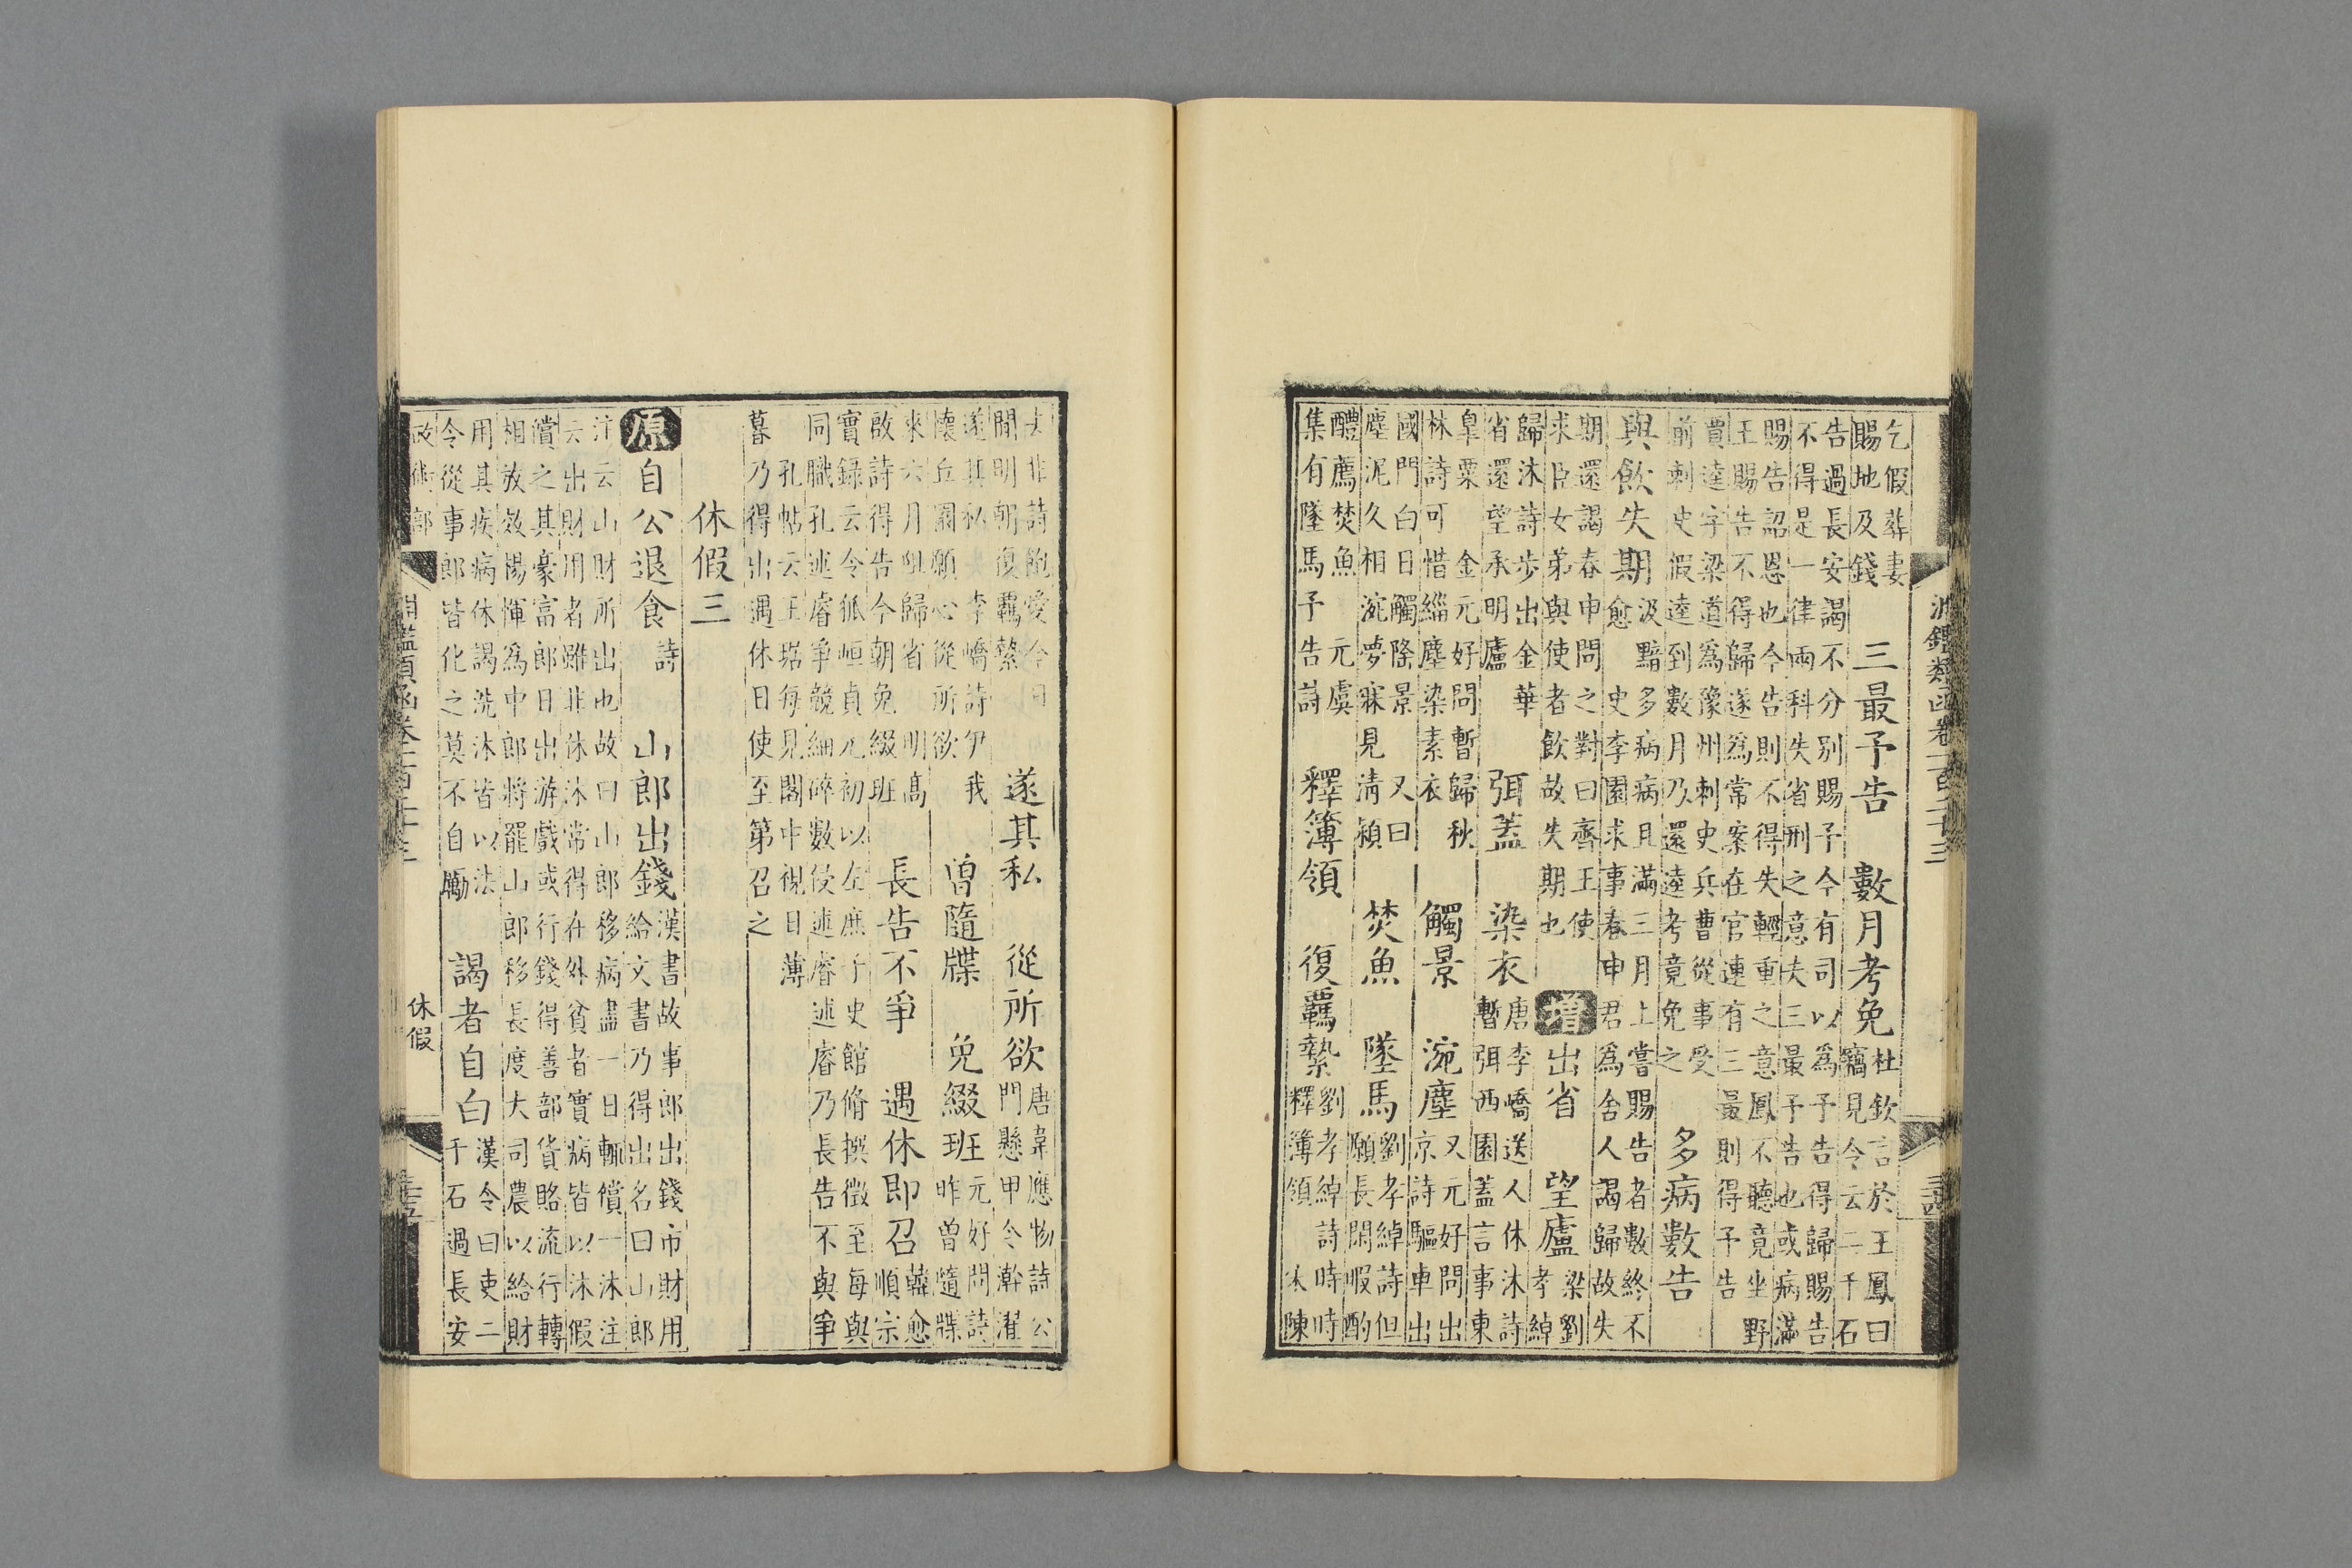 淵鑑類函卷一百二十三
乞假葬妻
賜地及錢
三最予告　數月考免
杜欽言於王鳳曰
竊見令云二千石
告過長安謁不分別賜予今有司以為予告得歸賜告
不得是一律兩科失省刑之意夫三最予告也或病滿
賜告詔恩也今告則不得失輕重之意鳳不聽竟坐野
王賜告不得歸遂為常案在官連有三最則得予告
賈逵字梁道為豫州刺史兵曹從事受
前刺史假逵到數月乃還逵考竟免之
多病數告
與飲失期
汲黯多病病且滿三月上嘗賜告者數終不
愈　史李園求事春申君為舍人謁歸故失
期還謁春申問之對曰齊王使
求臣女弟與使者飲故失期也
增出省　望廬
梁劉
孝綽
歸沐詩步出金華
省還望承明廬
弭蓋　染衣
唐李嶠送人休沐詩
暫弭西園蓋言事東
臯粟　金元好問暫歸秋
林詩可惜緇塵染素衣
觸景　涴塵
又元好問出
京詩驅車出
國門白日觸隆景　又曰
塵泥久相涴夢寐見清潁
焚魚　墜馬
劉孝綽詩但
願長閑暇酌
醴薦焚魚　元虞
集有墜馬予告詩
釋簿領　復羈縶
劉孝綽詩時時
釋簿領　太陳
去非詩飽愛今日
閒明朝復羈縶
遂其私　從所欲
唐韋應物詩公
門懸甲令澣濯
遂其私　李嶠詩伊我
懷丘園願心從所欲
曾隨牒　免綴班
元好問詩
昨曾隨牒
來六月阻歸省　明高
啟詩得告今朝免綴班
長告不爭　遇休即召
韓愈
順宗
實録云令狐峘貞元初以左庶子史館脩撰徵至每與
同職孔述睿爭競細碎數侵述睿述睿乃長告不與爭
孔帖云王琚每見閣中視日薄
暮乃得出遇休日使至第召之
休假三
原自公退食
詩
山郎出錢
漢書故事郎出錢市財用
給文書乃得出名曰山郎
云山財所出也故曰山郎移病盡一日輙償一沐注
云出財用者雖非休沐常得在外貧者實病皆以沐假
償之其豪富郎日出游戲或行錢得善部貨賂流行轉
相放效楊惲為中郎將罷山郎移長度大司農以給財
用其疾病休謁洗沐皆以法
令從事郎皆化之莫不自勵
謁者自白
漢令曰吏二
千石過長安
休假